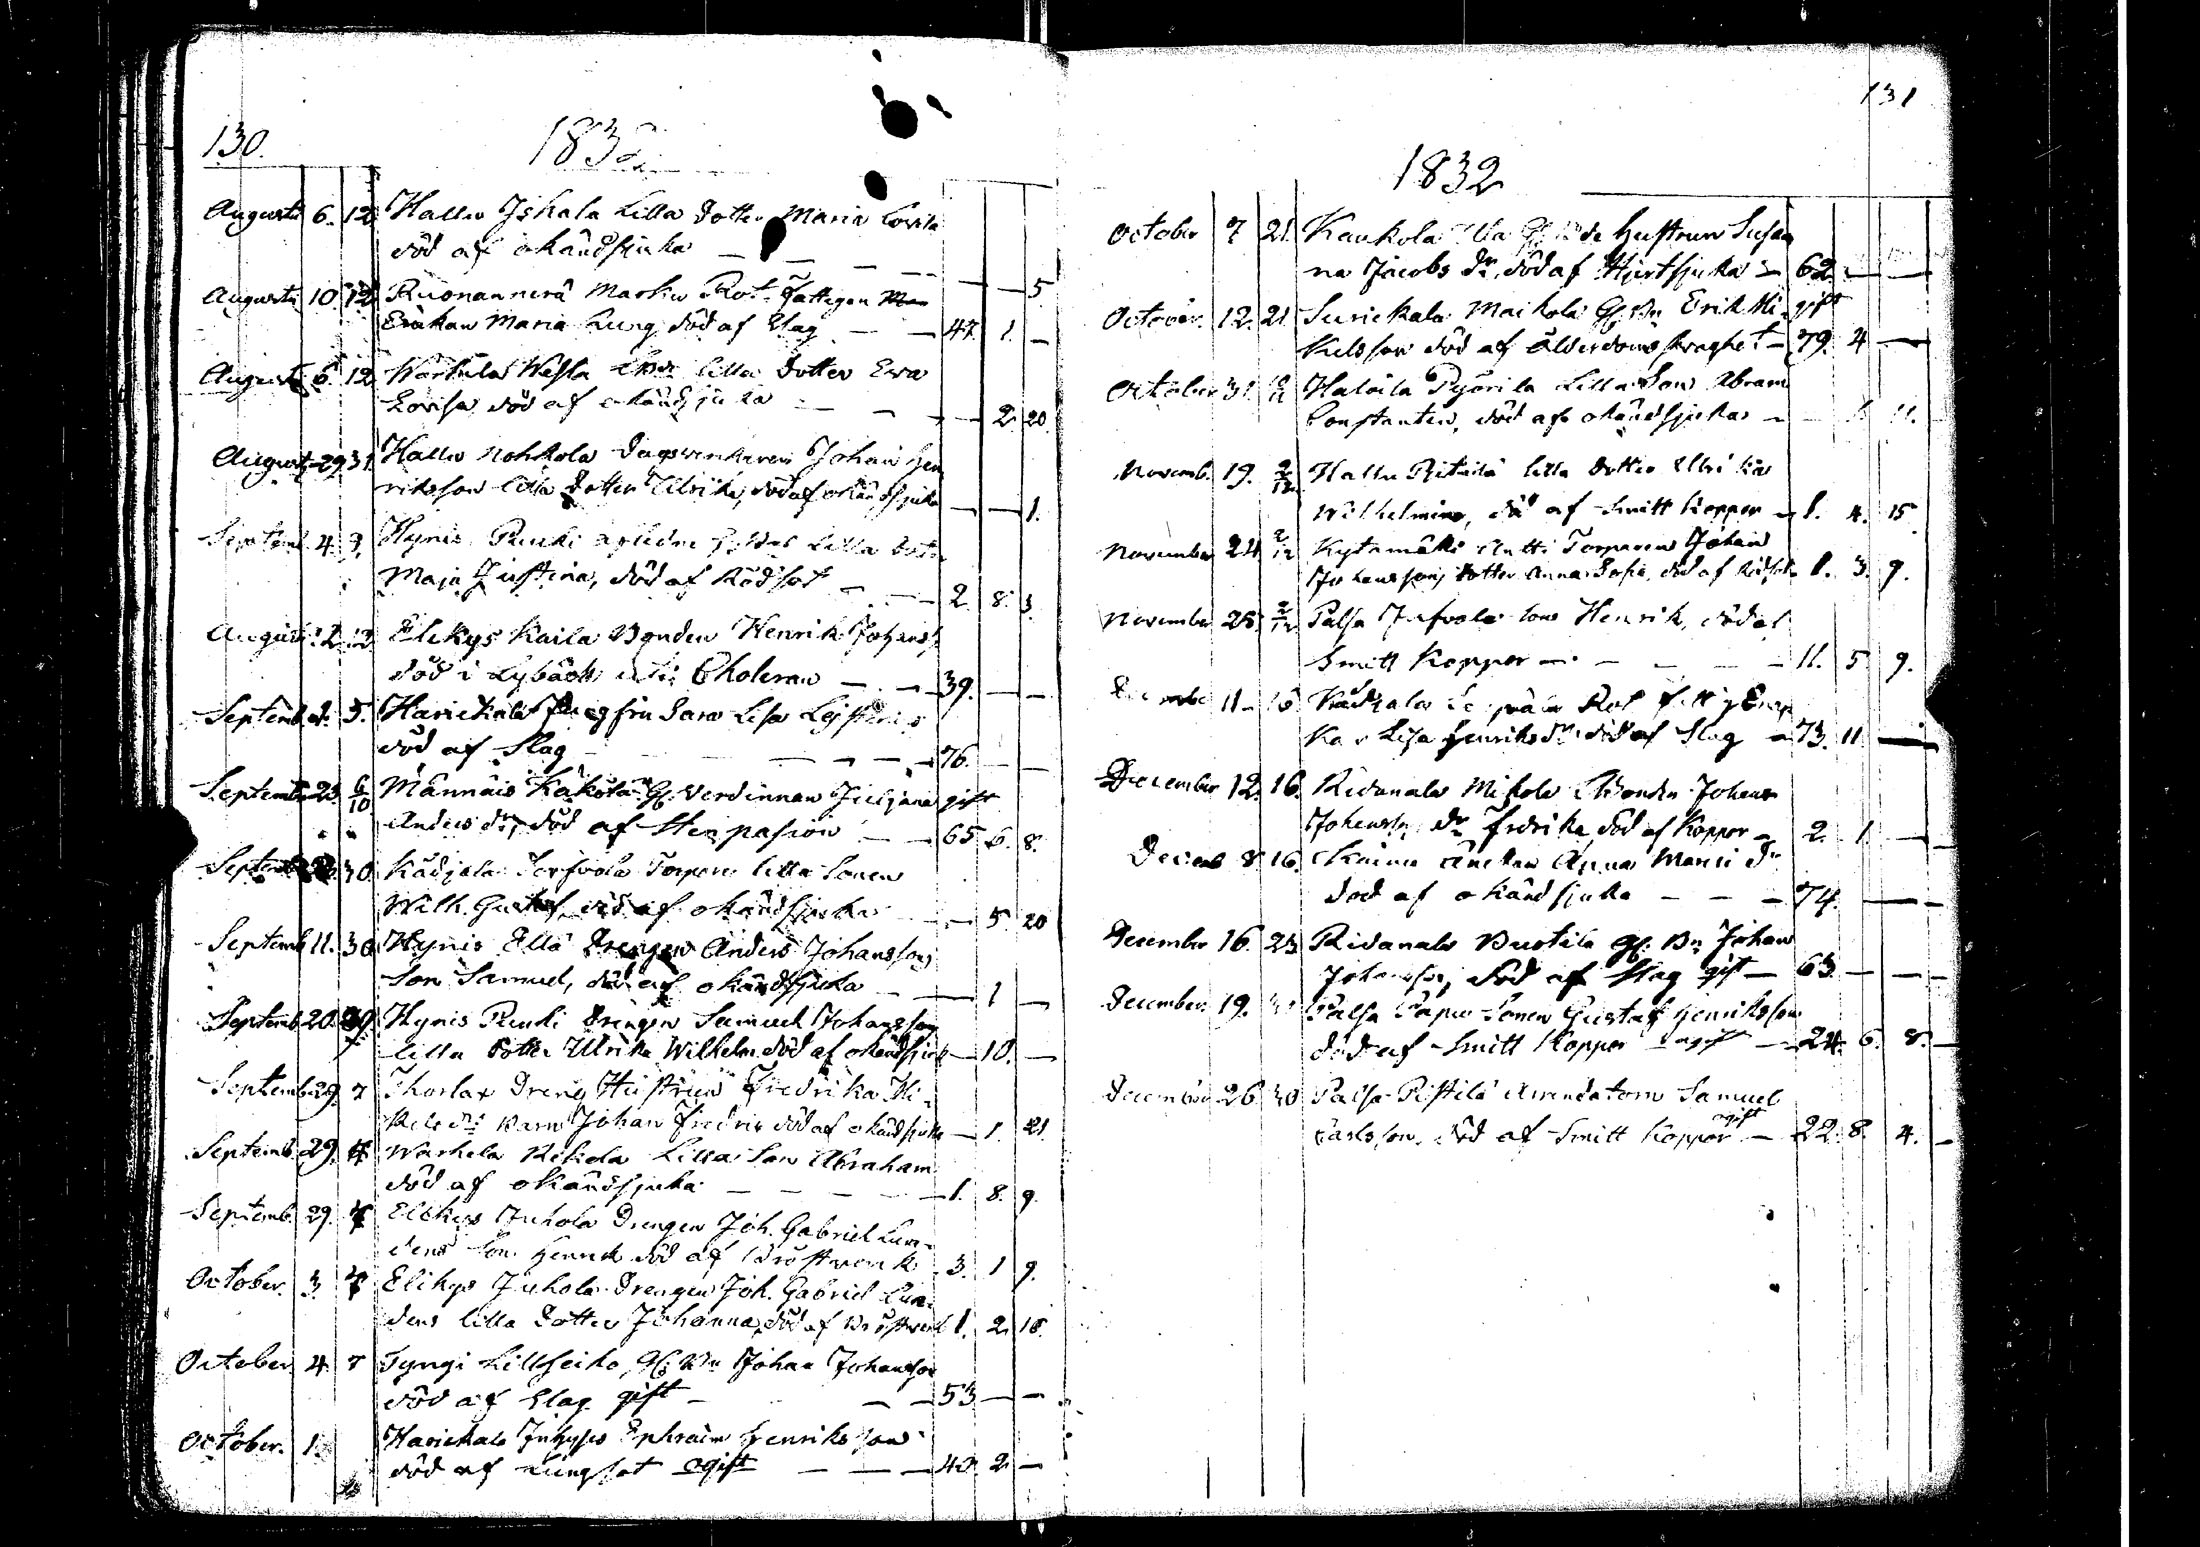 130.
1832
Augusti 6. 12 Hallu Iskala Lilla Dotter Maria Lovisa
död af okändsjuka — — — — — — 5
Augusti 10. 12 Ruonannerä Marku Rot. Fattigen
Enkan Maria Lurg död af Slag — — 47. 1. —
Augusti 6. 12 Wartula Wessa lilla Dotter Ewa
Lovisa död af okändsjuka — — — — 2. 20.
August 29 31 Hallu Nohkola Dagsverkaren Johan Hen
riksson lilla Dotter Ulrika, död af okändsjuka — — 1.
Septemb. 4 9. Hynis Penki aflidne lilla dotter
Maja Justina, död af Rödsot — — 2. 8. 3.
Augusti 2. 12 Elekys Kaila Bonden Henrik Johanss
död i Lybäck uti Choleran — — 39. — —
Septemb. 2. 5. Harickala Jungfru Sara Lisa
död af Slag — — — — 76. — —
Septemb 23 6/10 Männäis Käkölä Gf. Verdinnan Juljana gift
Anders dr, död af Stenpasion — — 65 6. 8.
Septemb 30 Kädjala Torfvola Torparen lilla Sonen
Wilh. Gustaf, död af okändsjuka — — 5. 20
Septemb 11. 30 Hynis Ellä Drengen Anders Johansson
Son Samuel, död af okändsjuka — — 1 —
Septemb 20. Hynis Penki Drengen Samuel Johansson
lilla Dotter Ulrika Wilhelm. död af okändsjuk — 10. —
Septemb 29. 7 Thorlax Dreng Hustrun Fredrika Mi-
kels dr. Barn Johan Fredric död af okändsjuka — 1. 21.
Septemb 29. 7 Warhela Rekola Lilla Son Abraham
död af okändsjuka — — — — 1. 8. 9.
Septemb. 29. 7 Elekys Juhola Drengen Joh. Gabriel Lun-
dens Son Henrik död af Bröstverk — 3. 1 9.
October. 3 7 Elikys Juhola Drengen Joh. Gabriel Lun-
dens lilla Dotter Johanna, död af Bröstverk 1. 2. 18.
October. 4. 7 Tyngi Lillheiko, Gf. Bn Johan Johansson
död af Slag gift — — — 53 — —
October. 1. Harickala Ephraim Henriksson
död af Lungsot ogift — — — 40. 2 —
131
1832
October 7 21. Kaukola Hustrun Susan
na Jacobs dr. död af Hjertsjuka — 62. — —
October. 12. 21. Surickala Maikola Gf. Bn Erik Mi- gift
kelsson död af ålderdoms svaghet — 79. 4 —
October 31. Haloila Pyörilä Lilla Son Abram
Constantin, död af okändsjuka — — 11.
Novemb. 19. 2/12 Hallu Ritailä lilla Dotter Ulrika
Wilhelmina, död af Smitt Koppor — 1. 4. 15
November 24. 2/12 Kytömäki Antti Torparen Johan
Johansson, Dotter Anna Sofia, död af Rödsot 1. 3. 9.
November 25. 2/12 Palsa Jufvola Son Henrik, död af
Smitt Koppor — — — 11. 5 9.
December 11 16 Kädjala Rot fattig Enk
kan Lisa Henriks dr. död af Slag — 73. 11 —
December 12. 16. Ridanala Mikola Bonden Johan
Johanss. dr. Fredrika död af Koppor — 2. 1. —
Decemb 8. 16. Enckan Anna Marci dr
död af okändsjuka — — — 74. — —
December 16. 23 Ridanala Buotila Gf. Bn Johan
Johansson, död af Slag gift — 63. — — —
December. 19. Palsa Papu Sonen Gustaf Henriksson
död af Smitt Koppor ogift — 24. 6. 8. —
December 26 30 Palsa Pistilä Arrendatorn Samuel
Carlsson, död af Smitt Koppor ogift — 22. 8. 4. —